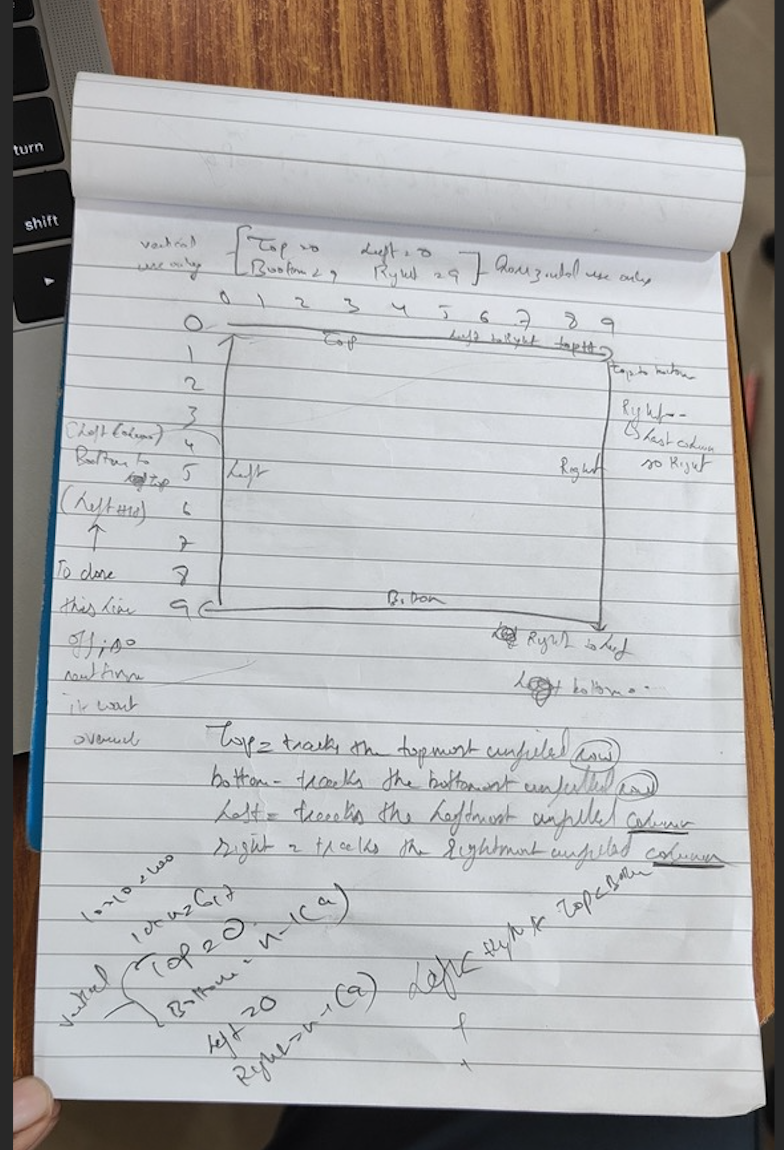 turn
shift
vertical use only
Top = 0 Left = 0
Bottom = 9 Right = 9
Horizontal use only
0 1 2 3 4 5 6 7 8 9
0
Top
Left to Right top++
1
top to bottom
2
3
Right--
Last column so Right
(Left column)
4
Bottom to top
5
Left
Right
(Left++)
6
7
To close
8
this line
9
Bottom
off, so
Right to Left
next time
bottom--
it wont
overwrite
Top = tracks the topmost unfilled row
bottom - tracks the bottomost unfilled row
Left = tracks the leftmost unfilled column
right = tracks the rightmost unfilled column
10 × 10 = 100
vertical
Top = 0
Bottom = n-1 (9)
Left = 0
Right = n-1 (9)
Left < Right & Top < Bottom